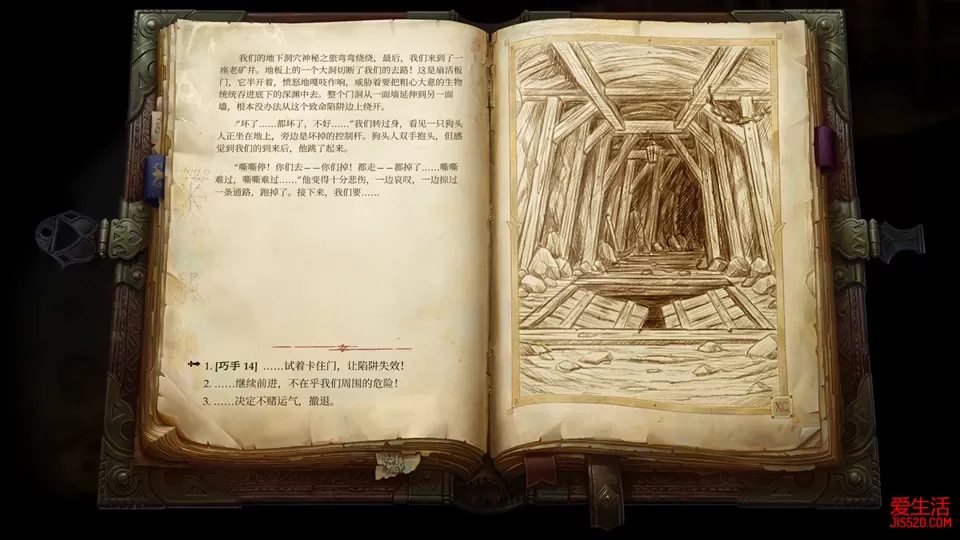 我们的地下洞穴神秘之旅弯弯绕绕，最后，我们来到了一
座老矿井。地板上的一个大洞切断了我们的去路！这是扇活板
门，它半开着，愤怒地嘎吱作响，威胁着要把粗心大意的生物
统统吞进底下的深渊中去。整个门洞从一面墙延伸到另一面
墙，根本没办法从这个致命陷阱边上绕开。
“坏了……都坏了，不好……”我们转过身，看见一只狗头
人正坐在地上，旁边是坏掉的控制杆。狗头人双手抱头，但感
觉到我们的到来后，他跳了起来。
“嘶嘶停！你们去——你们掉！都走——都掉了……嘶嘶
难过，嘶嘶难过……”他变得十分悲伤，一边哀叹，一边掠过
一条通路，跑掉了。接下来，我们要……
1. [巧手 14] ……试着卡住门，让陷阱失效！
2. ……继续前进，不在乎我们周围的危险！
3. ……决定不赌运气，撤退。
XC
爱生活
JIS520.COM